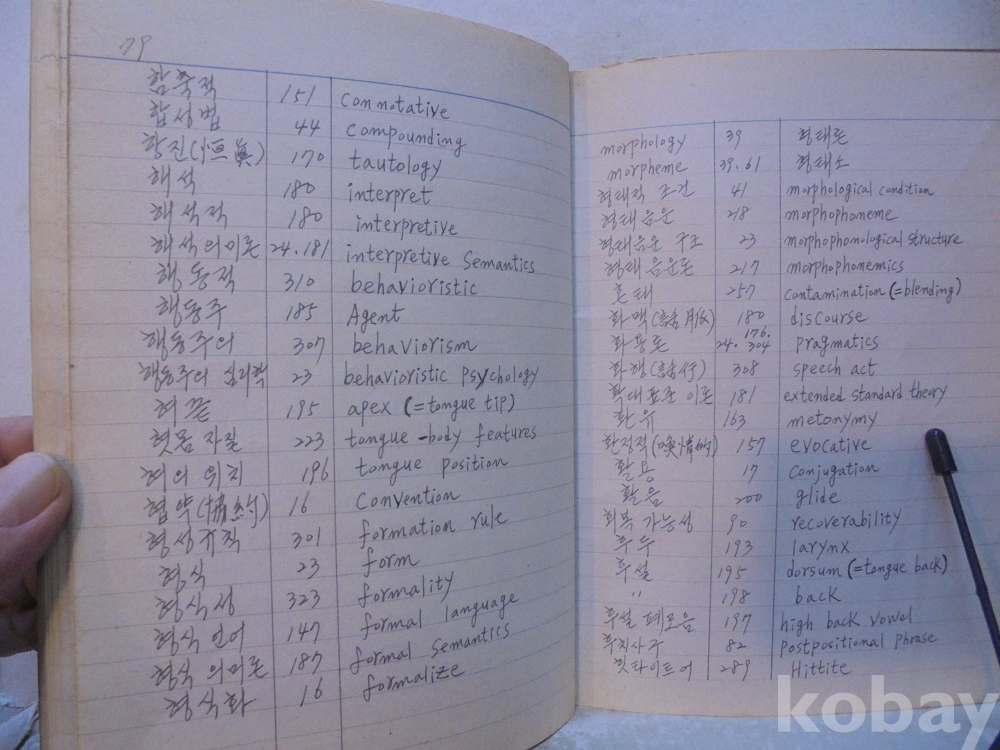 79
함축적 151 connotative
합성법 44 compounding
항진(恒眞) 170 tautology
해석 180 interpret
해석적 180 interpretive
해석의미론 24.181 interpretive semantics
행동적 310 behavioristic
행동주 185 Agent
행동주의 307 behaviorism
행동주의 심리학 23 behavioristic psychology
혀끝 195 apex (=tongue tip)
혓몸 자질 223 tongue-body features
혀의 위치 196 tongue position
협약(協約) 16 convention
형성규칙 301 formation rule
형식 23 form
형식성 323 formality
형식 언어 147 formal language
형식 의미론 187 formal semantics
형식화 16 formalize
morphology 39 형태론
morpheme 39.61 형태소
형태적 조건 41 morphological condition
형태음운 218 morphophoneme
형태음운 구조 23 morphophonological structure
형태음운론 217 morphophonemics
혼태 257 contamination (=blending)
화맥(話脈) 180 discourse
화용론 24. 176. 304 pragmatics
화행(話行) 308 speech act
확대표준 이론 181 extended standard theory
환유 163 metonymy
환정적(喚情的) 157 evocative
활용 17 conjugation
활음 200 glide
회복 가능성 90 recoverability
후두 193 larynx
후설 195 dorsum (=tongue back)
" 198 back
후설 폐모음 197 high back vowel
후치사구 82 postpositional phrase
힛타이트어 289 Hittite
kobay